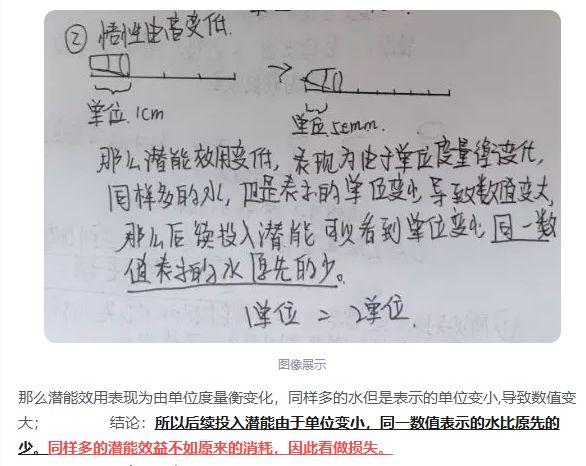 ② 悟性由高变低.
单位 1cm
单位 5mm.
那么潜能效用变低，表现为由于单位度量衡变化,
同样多的水，但是表示的单位变小 导致数值变大,
那么后续投入潜能 可以看到单位变小 同一数
值表示的水 原先的少。
1单位 = 2单位.
图像展示
那么潜能效用表现为由单位度量衡变化，同样多的水但是表示的单位变小,导致数值变
大； 结论：所以后续投入潜能由于单位变小，同一数值表示的水比原先的
少。同样多的潜能效益不如原来的消耗，因此看做损失。